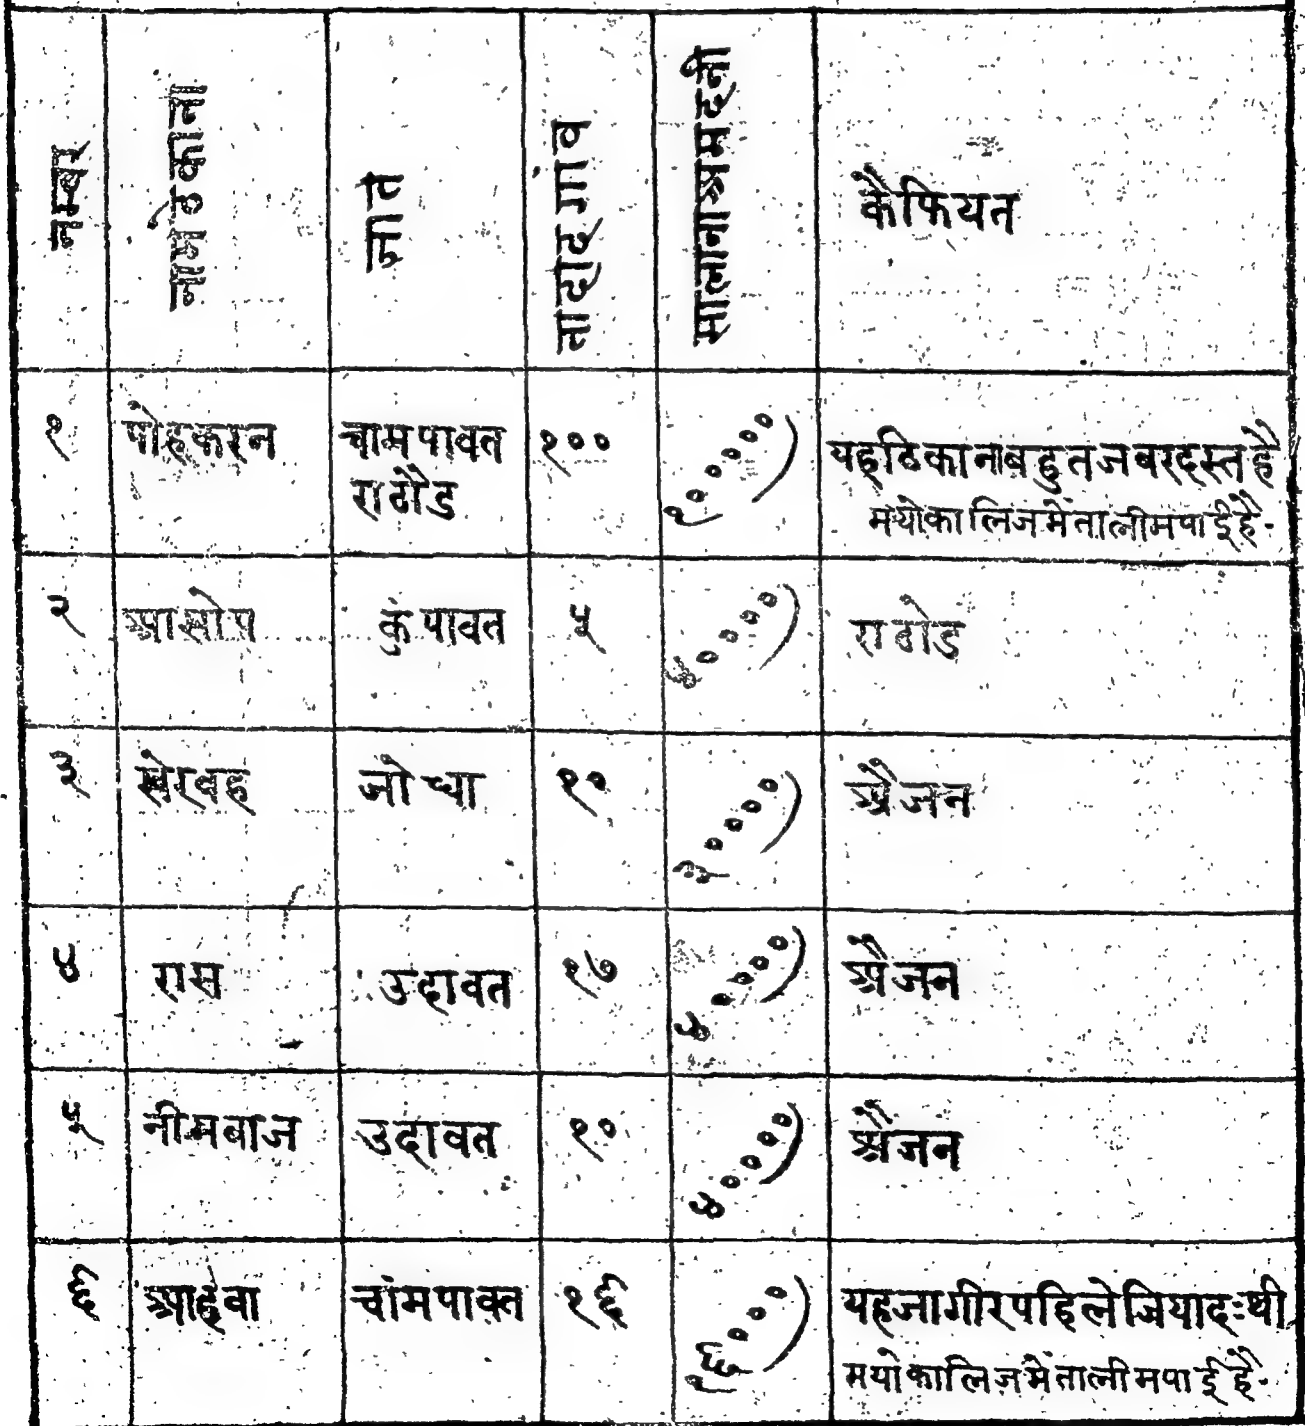 नम्बर
नाम ठेकाना
जात
तादाद गांव
सालाना आमदनी
कैफियत
१
पोहकरन
चामपावत
राठौड
१००
१०००००)
यह ठिकाना बहुत जबरदस्त है
मयो कालिज में तालीम पाई है-
२
आसोप
कुंपावत
५
४००००)
राठोड
३
खेरवह
जोधा
१०
३००००)
औजन
४
रास
उदावत
१७
४००००)
औजन
५
नीमबाज
उदावत
१०
४००००)
औजन
६
आहवा
चांमपावत
१६
१६०००)
यह जागीर पहिले जियादः थी
मयो कालिज में तालीम पाई है-